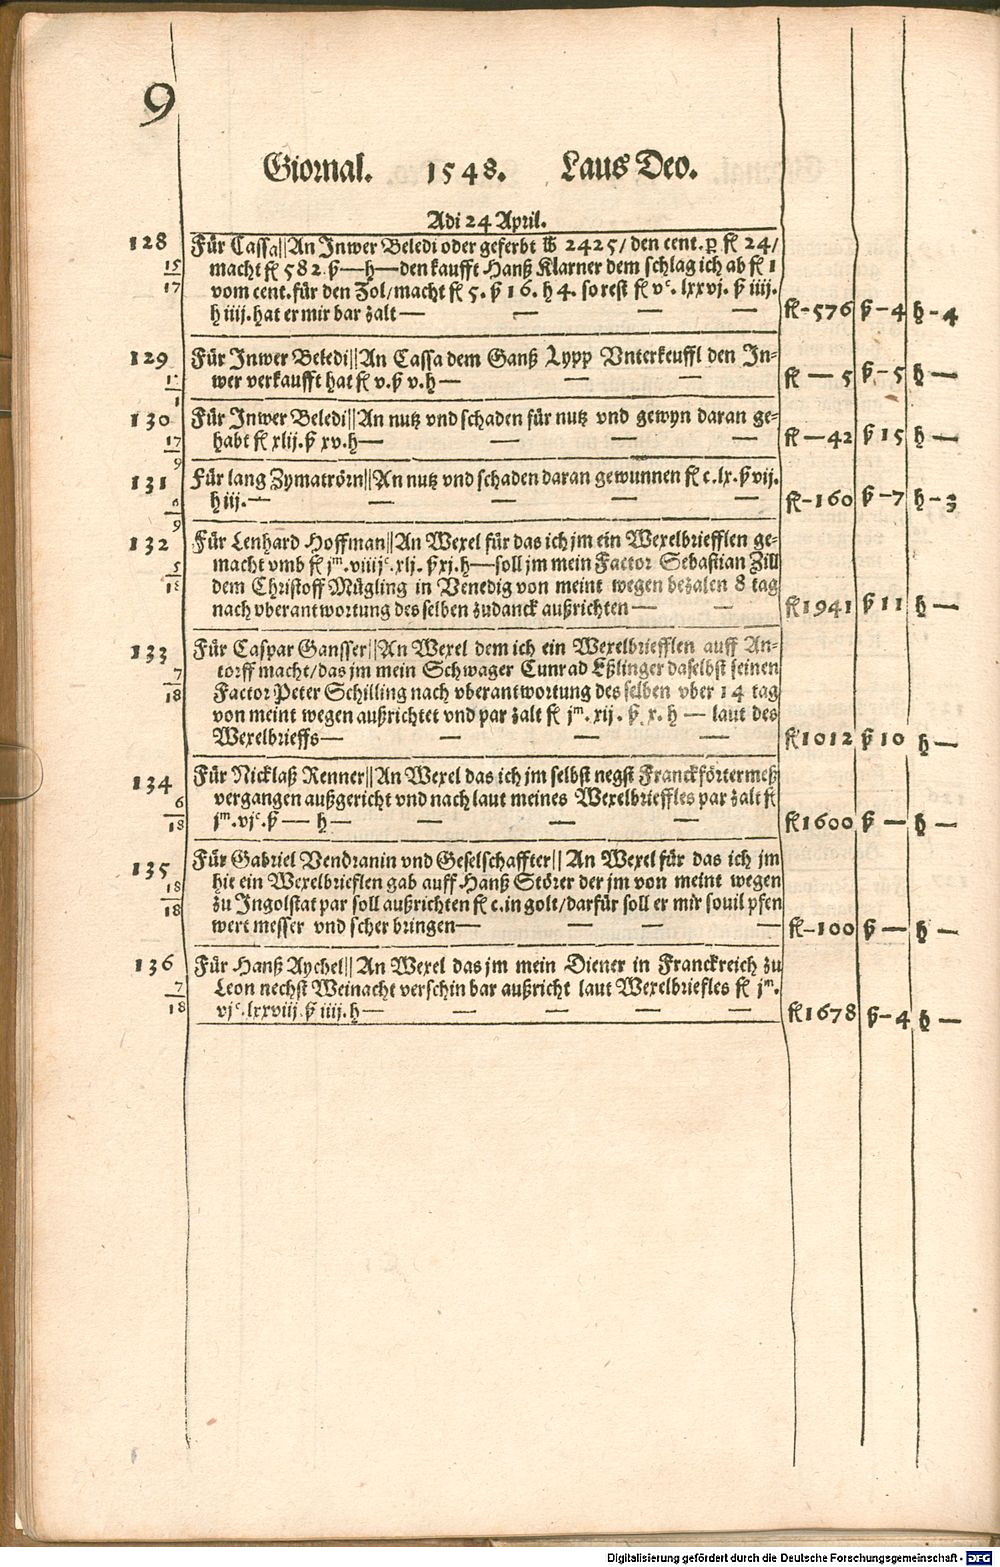 9
Giornal. 1548. Laus Deo.
Adi 24 April.
128 Für Cassa||An Inwer Beledi oder geferbt ℔ 2425/ den cent. ꝑ fl 24/
15 macht fl 582. ß — h — den kaufft Hanß Klarner dem schlag ich ab fl 1
17 vom cent. für den Zol/ macht fl 5. ß 16. h 4. so rest fl vᶜ. lxxvj. ß iiij.
h iiij. hat er mir bar zalt — — — — fl-576 ß-4 h-4
129 Für Inwer Beledi||An Cassa dem Ganß Lypp Vnterkeuffl den In-
wer verkaufft hat fl v. ß v. h — — — fl — 5 ß-5 h —
1
130 Für Inwer Beledi||An nutz vnd schaden für nutz vnd gewyn daran ge-
17 habt fl xlij. ß xv. h — — — — fl — 42 ß 15 h —
9
131 Für lang Zymatrörn||An nutz vnd schaden daran gewunnen fl c. lx. ß vij.
6 h iij. — — — — — fl-160 ß-7 h-3
9
132 Für Lenhard Hoffman||An Wexel für das ich jm ein Wexelbriefflen ge-
5 macht vmb fl jᵐ. viiijᶜ. xlj. ß xj. h — soll jm mein Factor Sebastian Zill
18 dem Christoff Mügling in Venedig von meint wegen bezalen 8 tag
nach vberantwortung des selben zudanck außrichten — — fl 1941 ß 11 h —
133 Für Caspar Gansser||An Wexel dem ich ein Wexelbriefflen auff An-
7 torff macht/ das jm mein Schwager Cunrad Eßlinger daselbst seinen
18 Factor Peter Schilling nach vberantwortung des selben vber 14 tag
von meint wegen außrichtet vnd par zalt fl jᵐ. xij. ß x. h — laut des
Wexelbrieffs — — — — fl 1012 ß 10 h —
134 Für Nicklaß Renner||An Wexel das ich jm selbst negst Franckförtermeß
6 vergangen außgericht vnd nach laut meines Wexelbrieffles par zalt fl
18 jᵐ. vjᶜ. ß — h — — — — fl 1600 ß — h —
135 Für Gabriel Vendranin vnd Geselschaffter|| An Wexel für das ich jm
18 hie ein Wexelbrieflen gab auff Hanß Störer der jm von meint wegen
18 zu Ingolstat par soll außrichten fl c. in golt/ darfür soll er mir souil pfen
wert messer vnd scher bringen — — — — fl-100 ß — h —
136 Für Hanß Aychel|| An Wexel das jm mein Diener in Franckreich zu
7 Leon nechst Weinacht verschin bar außricht laut Wexelbriefles fl jᵐ.
18 vjᶜ. lxxviij. ß iiij. h — — — — — fl 1678 ß-4 h —
Digitalisierung gefördert durch die Deutsche Forschungsgemeinschaft - DFG